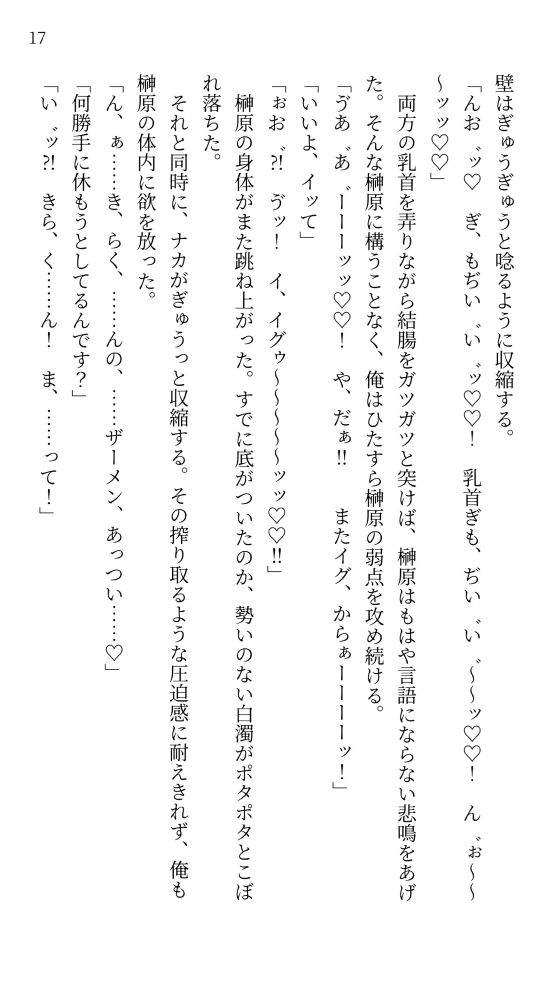 17
壁はぎゅうぎゅうと唸るように収縮する。
「んお゛ッ♡　ぎ、もぢい゛い゛ッ♡♡！　乳首ぎも、ぢい゛い゛～～ッ♡♡！　ん゛ぉ～～
～ッッ♡♡」
　両方の乳首を弄りながら結腸をガツガツと突けば、榊原はもはや言語にならない悲鳴をあげ
た。そんな榊原に構うことなく、俺はひたすら榊原の弱点を攻め続ける。
「ゔあ゛あ゛ーーーッッ♡♡！　や、だぁ‼　またイグ、からぁーーーーッ！」
「いいよ、イッて」
「ぉお゛⁈　ゔッ！　イ、イグゥ～～～～～ッッ♡♡‼」
　榊原の身体がまた跳ね上がった。すでに底がついたのか、勢いのない白濁がポタポタとこぼ
れ落ちた。
　それと同時に、ナカがぎゅうっと収縮する。その搾り取るような圧迫感に耐えきれず、俺も
榊原の体内に欲を放った。
「ん、ぁ……き、らく、……んの、……ザーメン、あっつい……♡」
「何勝手に休もうとしてるんです？」
「い゛ッ⁈　きら、く……ん！　ま、……って！」